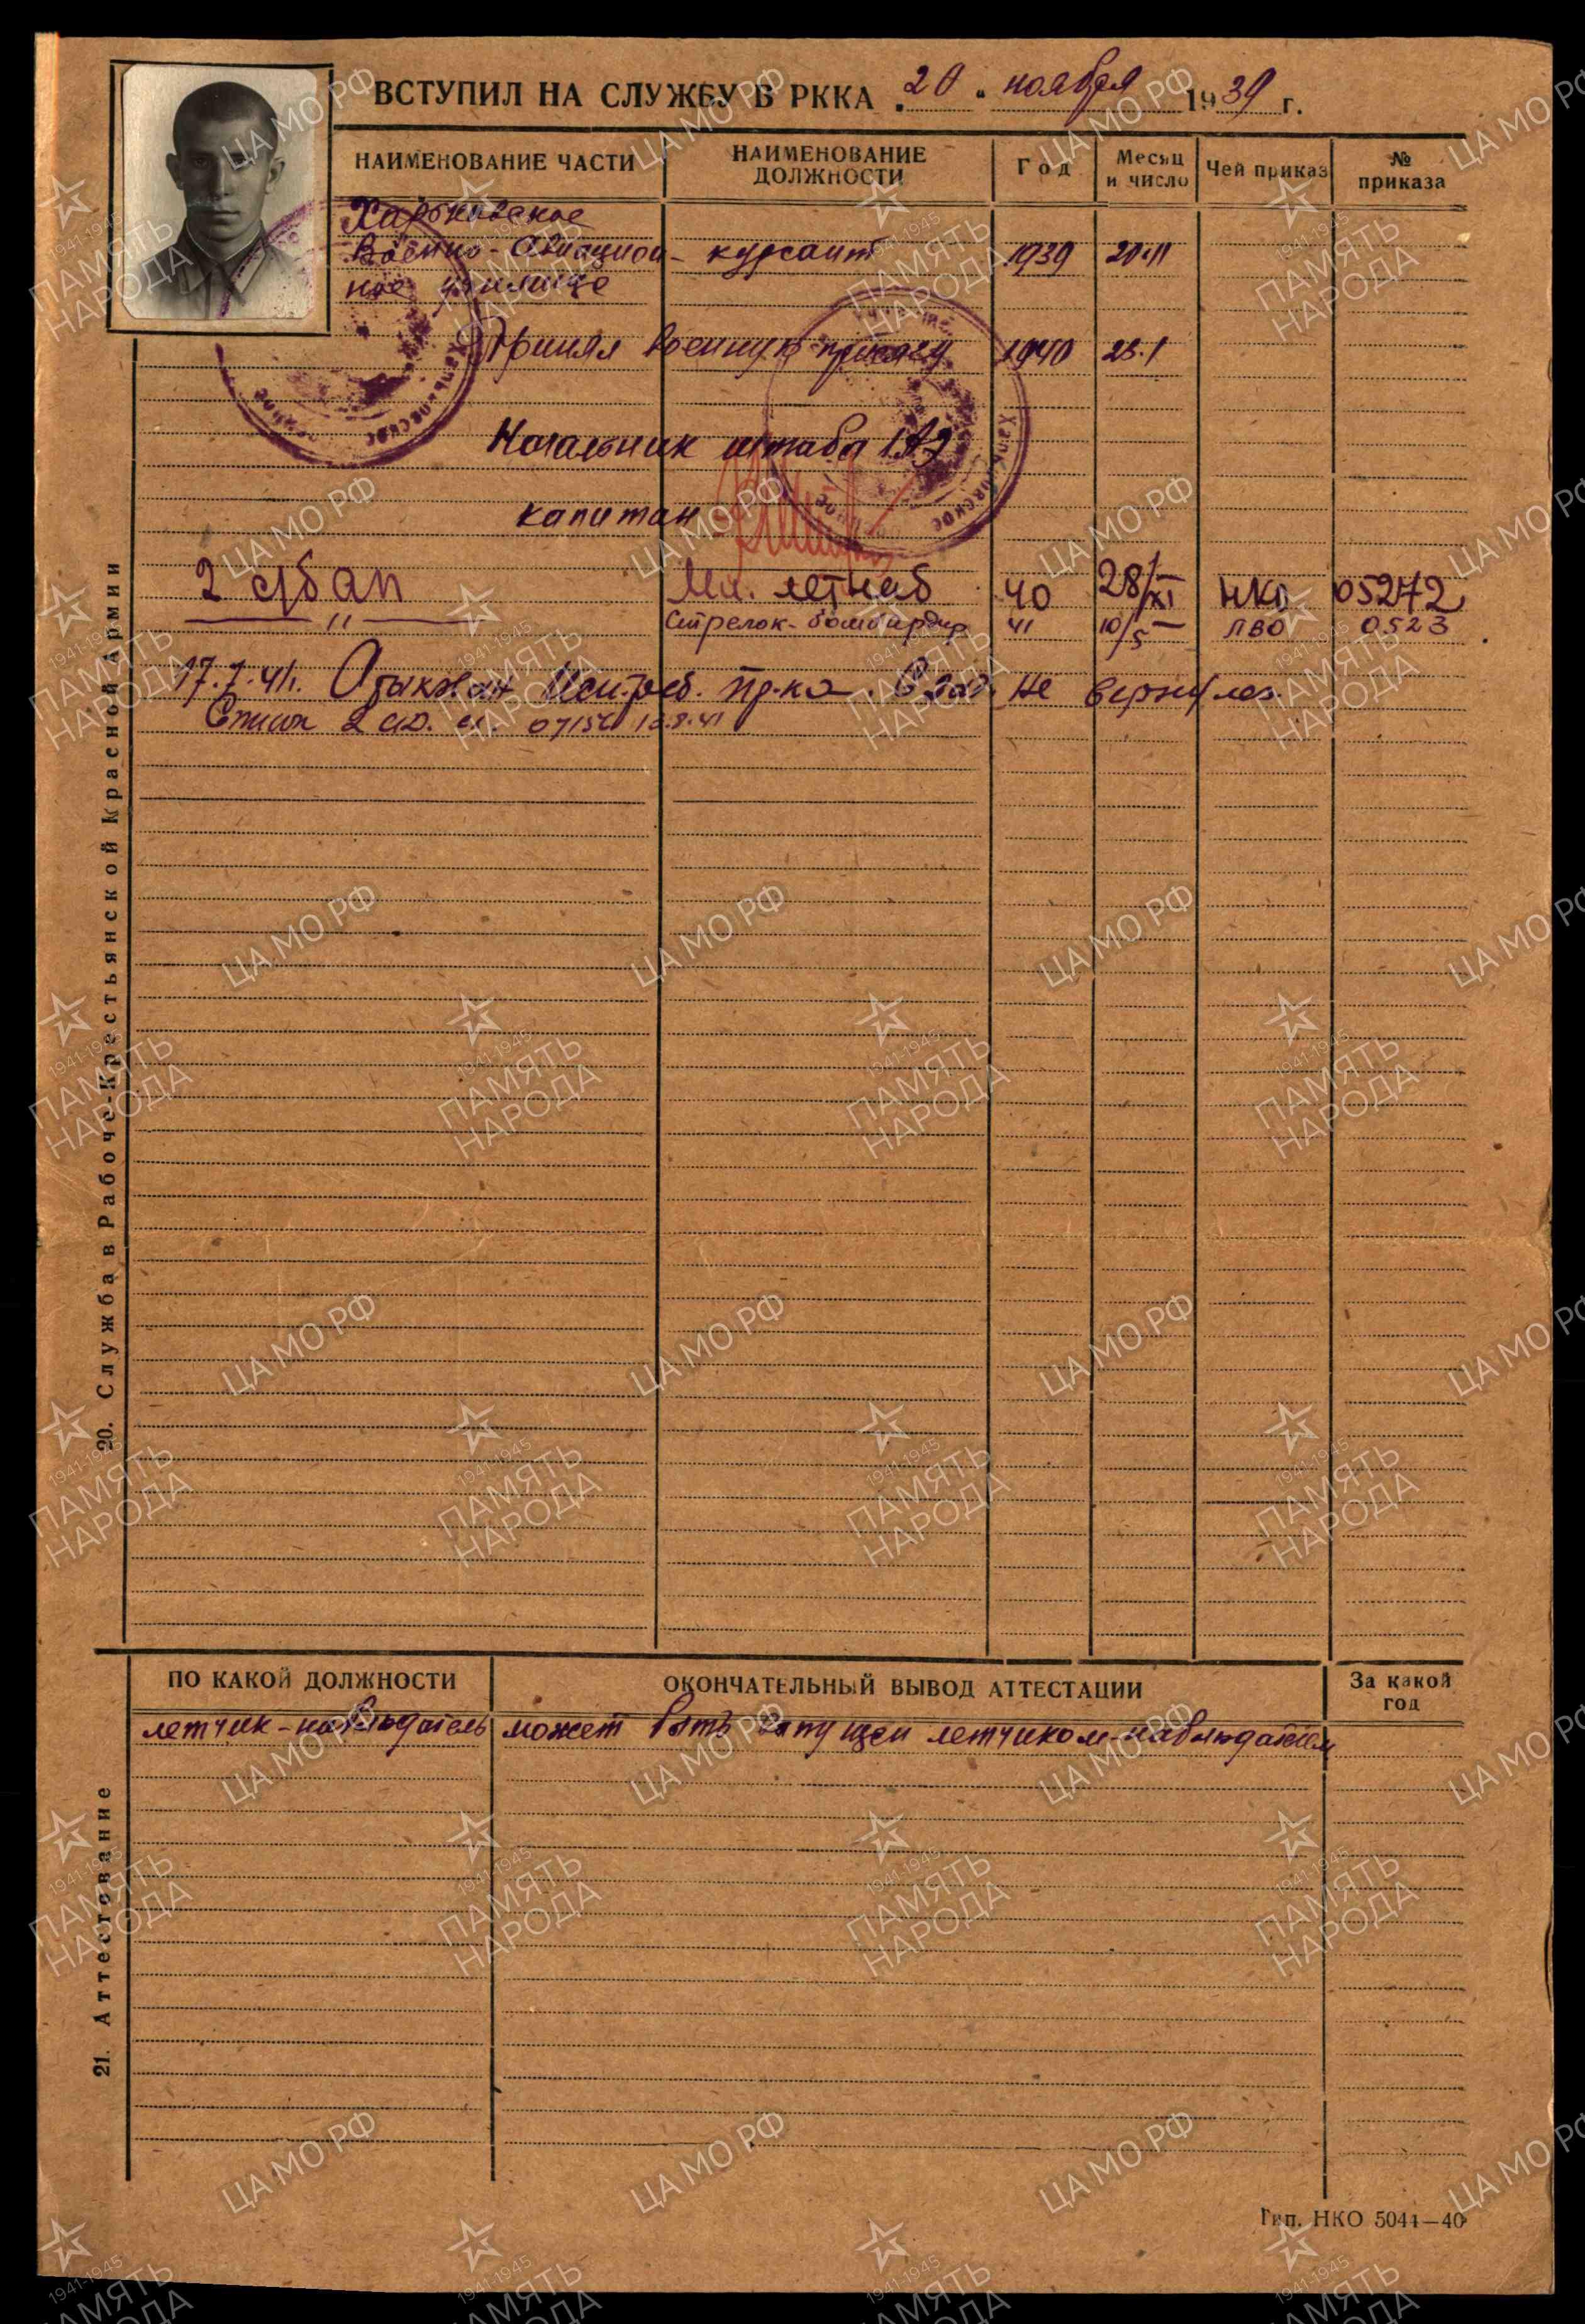 ВСТУПИЛ НА СЛУЖБУ В РККА „20“ ноября 1939 г.
НАИМЕНОВАНИЕ ЧАСТИ НАИМЕНОВАНИЕ ДОЛЖНОСТИ Год Месяц и число Чей приказ № приказа
Харьковское
Военно-Авиацион- курсант 1939 20.11
ное училище
Принял военную присягу 1940 23.1
Начальник штаба 1АЭ
капитан
2 сбап Мл. летнаб 40 28/XI НКО 05272
—— " —— Стрелок-бомбардир 41 10/5 ЛВО 0523
17.7.41г. Атакован Истреб. пр-ка. С зад. не вернулся.
Список 2 сд. 
20. Служба в Рабоче-Крестьянской Красной Армии
ПО КАКОЙ ДОЛЖНОСТИ ОКОНЧАТЕЛЬНЫЙ ВЫВОД АТТЕСТАЦИИ За какой год
летчик-наблюдатель может быть выпущен летчиком-наблюдателем
21. Аттестование
Тип. НКО 5044—40
ЦА МО РФ
1941-1945
ПАМЯТЬ
НАРОДА